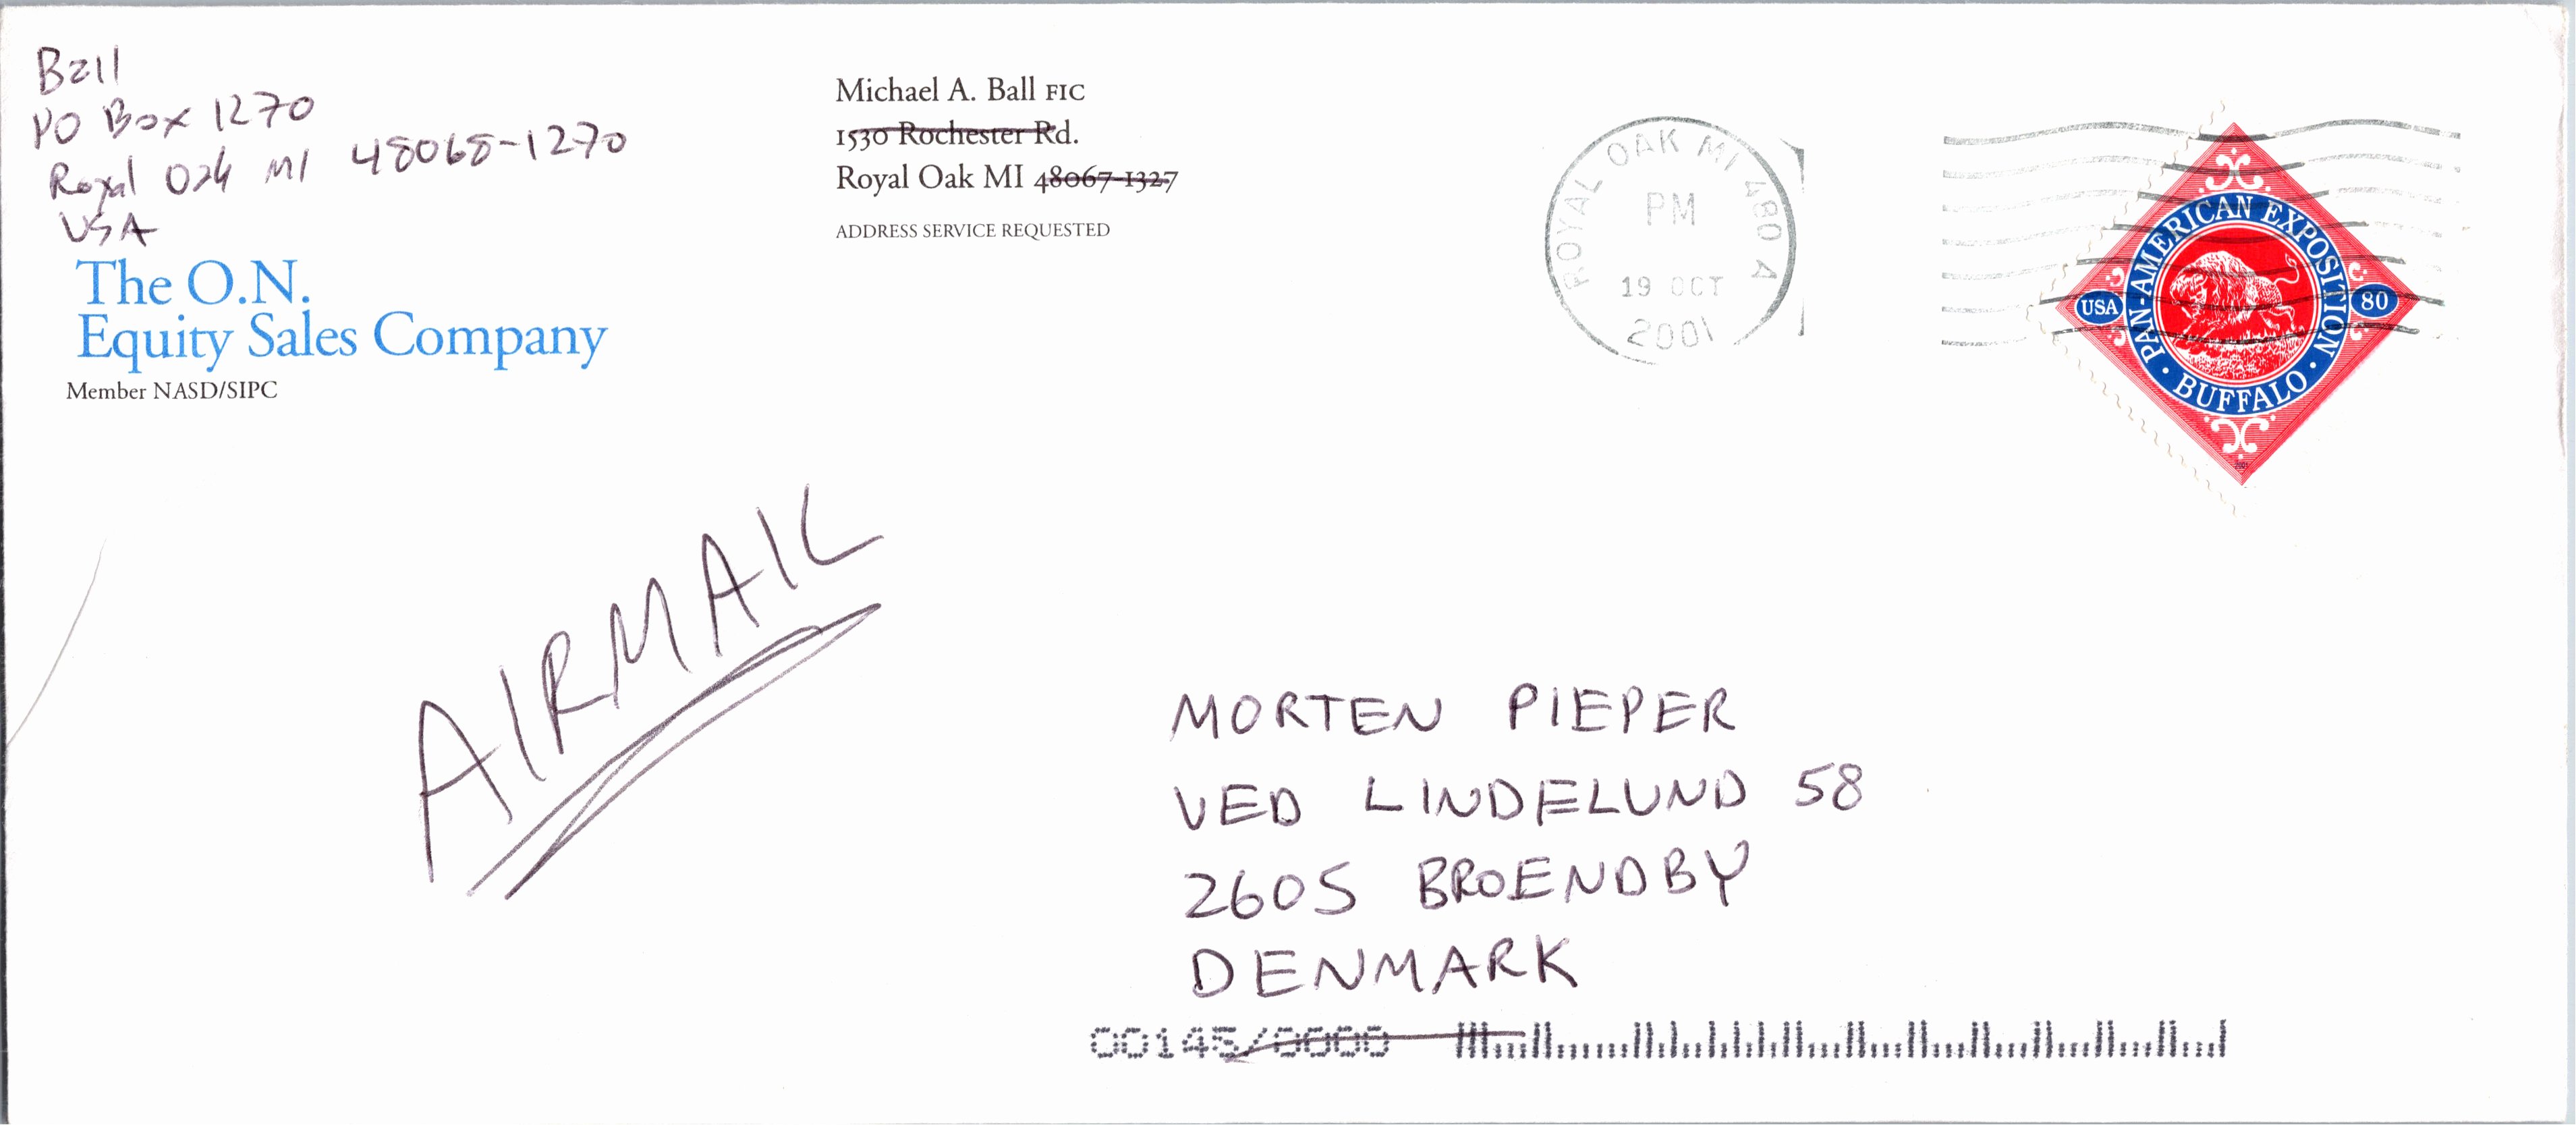 Ball
PO Box 1270
Royal Oak MI 48068-1270
USA
The O.N.
Equity Sales Company
Member NASD/SIPC
Michael A. Ball FIC
1530 Rochester Rd.
Royal Oak MI 48067-1327
ADDRESS SERVICE REQUESTED
ROYAL OAK MI 480 A
PM
19 OCT
2001
PAN-AMERICAN EXPOSITION
USA
80
· BUFFALO ·
2001
AIRMAIL
MORTEN PIEPER
VED LINDELUND 58
2605 BROENDBY
DENMARK
00145/0000